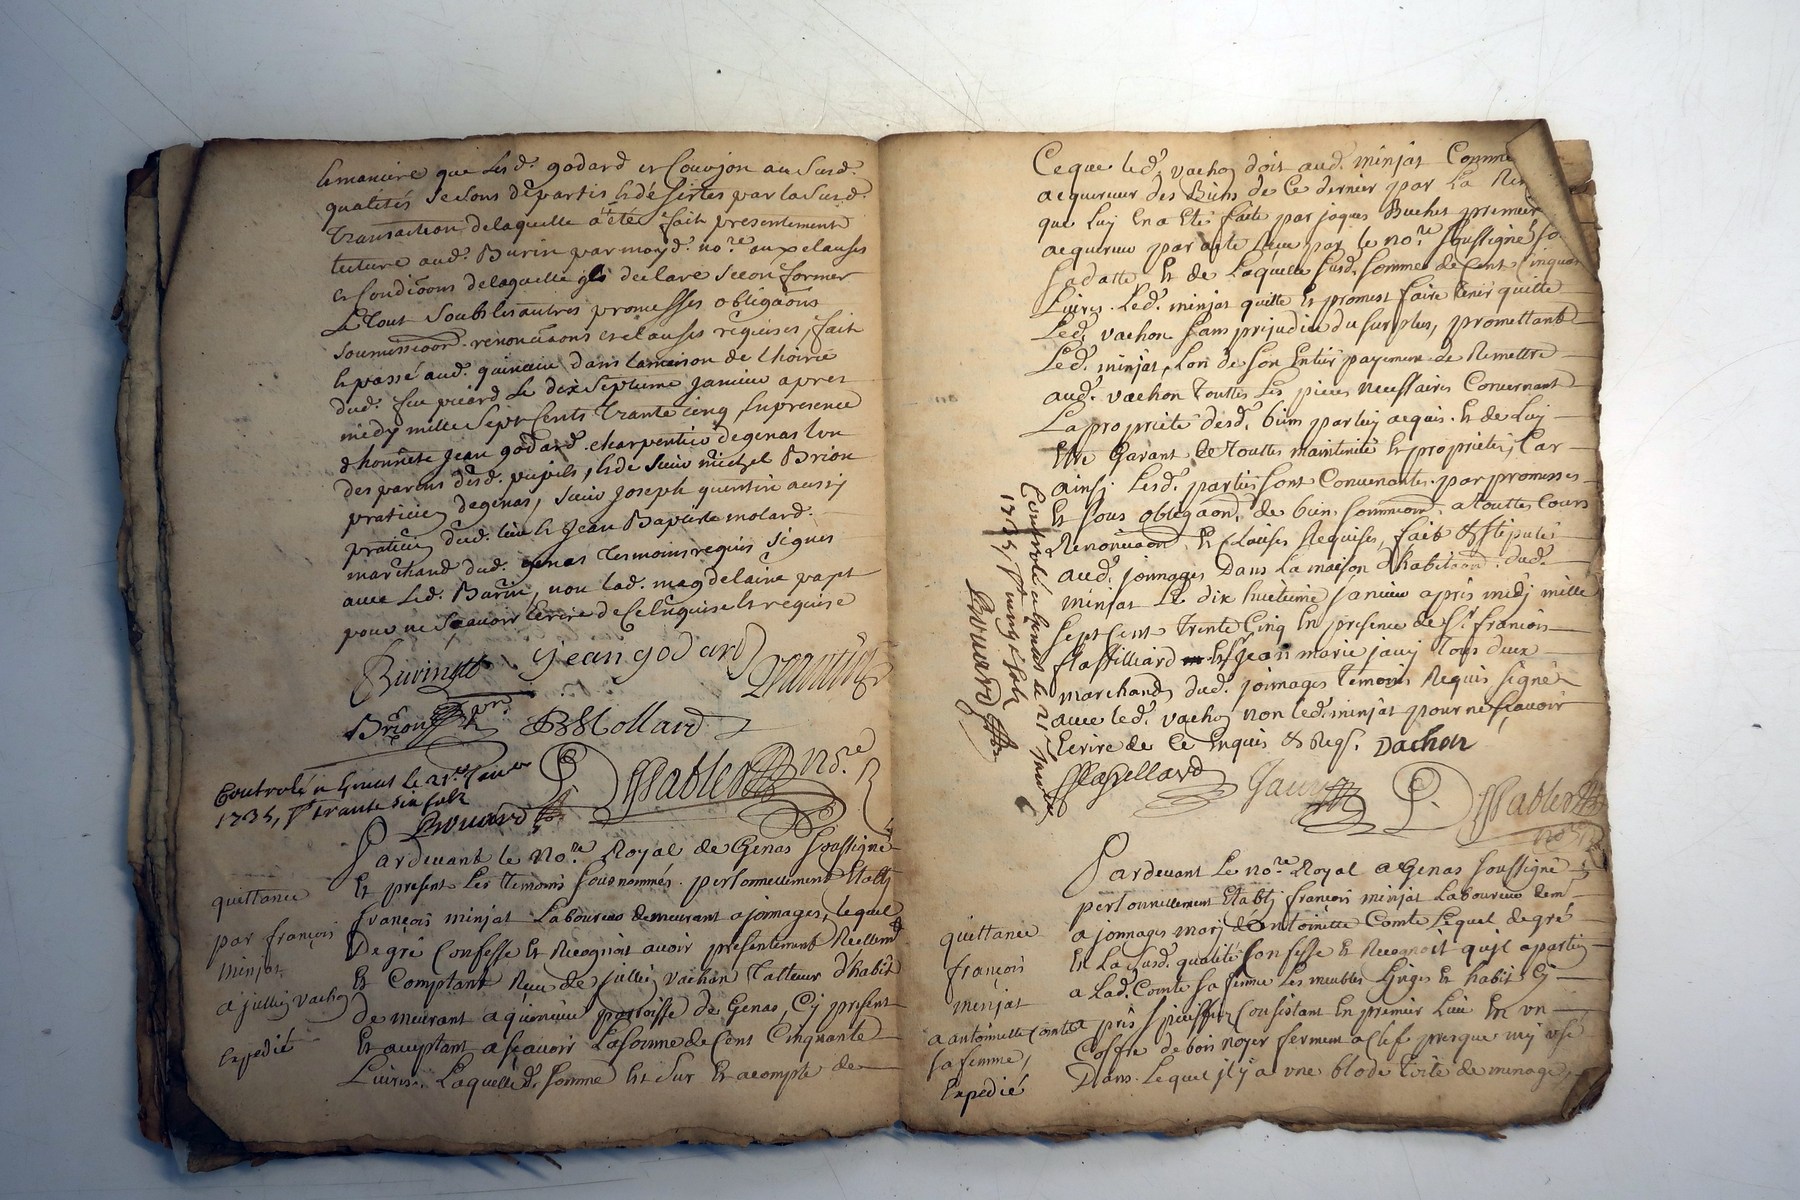 lemaniere que lesd. godard et Couvjon au Susd.
qualités Se sons départis & désistés par la Susd.
transaction de laquelle a été fait presentement
lecture aud. Burin par moyd. no.re aux clauses
et Condiōons de laquelle declare Se con former
Le tout Soubs les autres promesses obligāons
Soumissioon. renonciāons et clauses requises, fait
& passé aud. quincieu dans la maison de Lhoirie
dud. feu picard Le dix Septieme janvier apres
midy mille Sept Cents trante cinq, En presence
d'honnête jean godard charpentier de genas lun
des parens desd. pupils, & de Sieur michel Brion
praticien de genas, Sieur joseph quentin aussy
praticien dud. lieu & jean Baptiste molard
marchand dud. genas tesmoins requis Signés
avec Led. Burin, non lad. magdelaine papt
pour ne Scavoir Ecrire de Ce Enquise Et requise
jean godard
Brion
BMollard
Sablier no.re
Controlé a Genas le 21.e Janvier
1735, R trante six sols
Brouard
Pardevant le No.re Royal de Genas Soussigné
Et present Les temoins Sousnommés. personnellement Etably
quittance
par françois
minjat
a jullin vachon
Expedié
françois minjat Laboureur demeurant a jonnages, lequel
De gré Confesse Et Recognoit avoir presentement Reellem.t
Et Comptant Reçu de jullin vachon Tailleur d'habit
De meurant a quincieu parroisse de Genas, Cy present
Et aceptant a sçavoir La Somme de Cent Cinquante
Livres. Laquelle d. Somme Est Sur Et acompte de
Ceque led. vachon doit aud. minjat Comme
acquereur des Biens de Ce dernier par La
que Luy En a Eté faite par jaques Buchet premier
acquereur par acte Reçu par le no.re Soussigné
Sa datte Et de Laquelle Susd. Somme de Cent Cinquante
Livres. Led. minjat quitte Et promest faire tenir quitte
Led. vachon Sans prejudice du Surplus, promettant
Led. minjat, Lors de Son Entier payement de Remettre
aud. vachon Touttes Les pieces necessaires Concernant
La propriété desd. biens par luy acquis. Et de Luy
Etre Garant de touttes maintenüe Et proprietés, Car
ainsy Lesd. parties Sont Convenantes. par promesses
Et Sous obligāon. de biens. Soumission. a touttes Cours
Renonciāon. Et Clauses Requises, fait & Stipulé
aud. jonnages Dans La maison d'habitāon dud.
minjat Le dix huitieme janvier après midy mille
Sept Cent trente Cinq En presence de S.r françois
flassilliard Et jean marie jauy tous deux
marchands dud. jonnages temoins Requis Signé
avec led. vachon non led. minjat pour ne sçavoir
Ecrire de Ce Enquis & Reqs. vachon
Controlé a Genas le 21 Janvier
1735
Brouard
Sablier
no.re
Pardevant Le no.re Royal a Genas Soussigné
personnellement Etably françois minjat Laboureur dem.t
quittance
françois
minjat
a antoinette Comte
Sa femme,
Expedié
a jonnages mary d'antoinette Comte Lequel de gré
Et La Susd. qualité Confesse Et Recognoit quil apartien
a Lad. Comte Sa femme Les meubles Linges Et habits Cy
après Consistant En premier Lieu En un
Coffre de bois noyer fermant a Clef presque my usé
Dans Lequel il y a une blode toile de menage,